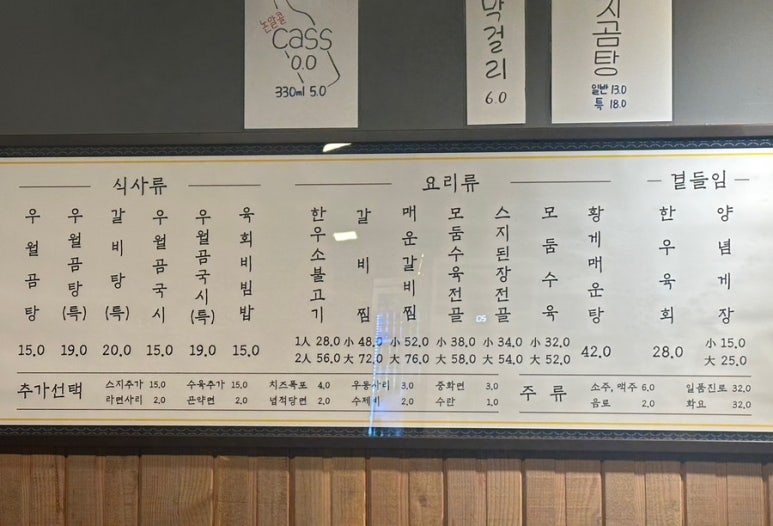 논알콜
Cass
0.0
330ml 5.0
막걸리
6.0
지곰탕
일반 13.0
특 18.0
식사류
우월곰탕 15.0
우월곰탕(특) 19.0
갈비탕(특) 20.0
우월곰국시 15.0
우월곰국시(특) 19.0
육회비빔밥 15.0
요리류
한우소불고기 1人 28.0 2人 56.0
갈비찜 小 48.0 大 72.0
매운갈비찜 小 52.0 大 76.0
모둠수육전골 小 38.0 大 58.0
스지된장전골 小 34.0 大 54.0
모둠수육 小 32.0 大 52.0
황게매운탕 42.0
곁들임
한우육회 28.0
양념게장 小 15.0 大 25.0
추가선택
스지추가 15.0 수육추가 15.0 치즈폭포 4.0 우동사리 3.0 중화면 3.0
라면사리 2.0 곤약면 2.0 넙적당면 2.0 수제비 2.0 수란 1.0
주류
소주, 맥주 6.0 일품진로 32.0
음료 2.0 화요 32.0